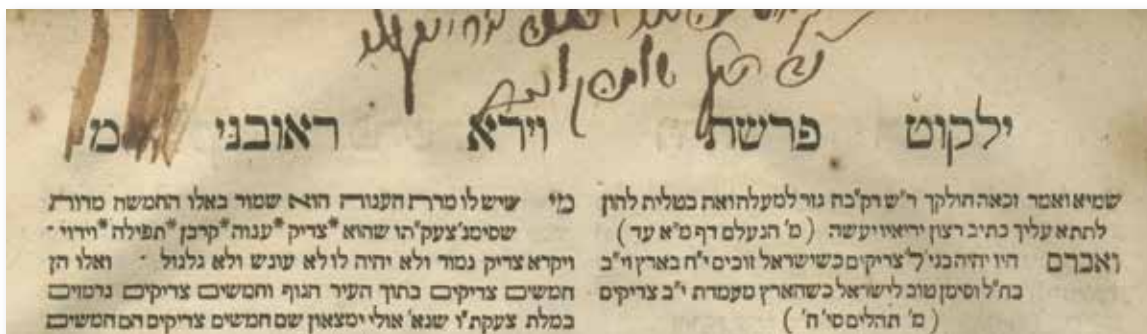 ילקוט פרשת וירא ראובני מ
שמיא ואמר זכאה חולקך ר"ש דק"בה גזר למעלה ואת בטלית להון
לתתא עליך כתיב רצון יריאיו יעשה (מ' הנעלם דף מ"א עד)
ואברם היו יהיה בגי' ל' צדיקים כשישראל זוכים י"ח בארץ וי"ב
בח"ל וסימן טוב לישראל כשהארץ מעמדת י"ב צדיקים
(מ' תהלים סי' ח')
מי שיש לו מדת הענוה הוא שמור באלו החמשה מדות
שסימנ' צעק"תו שהוא *צדיק *ענוה *קרבן *תפילה *וידוי
ויקרא צדיק גמור ולא יהיה לו לא עונש ולא גלגול ואלו הן
חמשים צדיקים בתוך העיר הגוף וחמשים צדיקים נרמזים
במלת צעקת"ו שנא' אולי ימצאון שם חמשים צדיקים הם חמשים